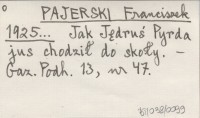 PAJERSKI Franciszek
1925... Jak Jędruś Pyrda
jus chodził do skoły. –
Gaz. Podh. 13, nr 47.